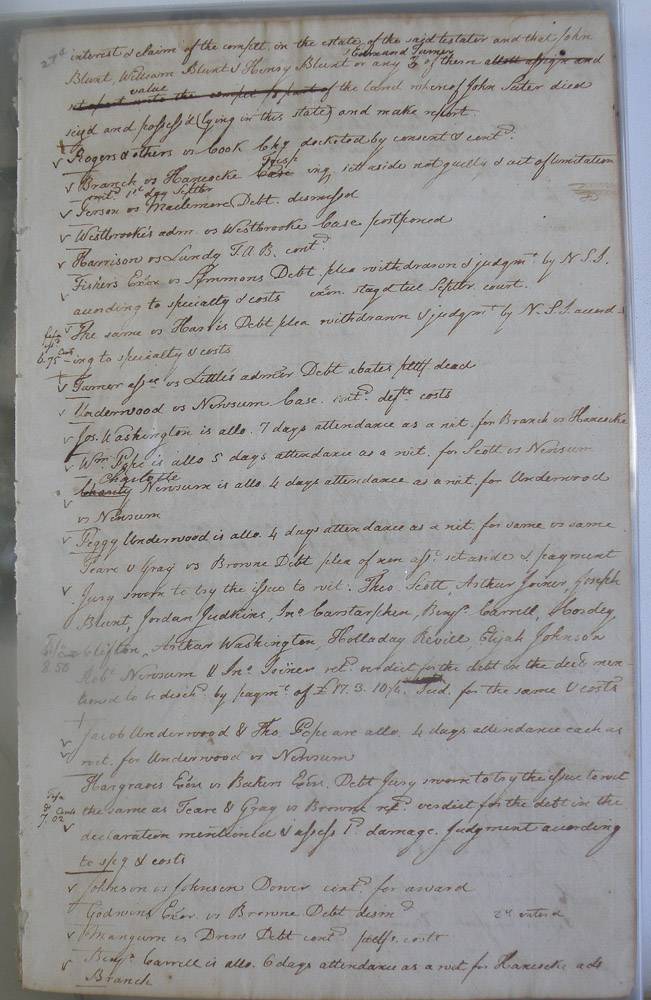 interest & claim of the complt. in the estate of the said testator and that John
Edmund Turner
Blunt, William Blunt & Henry Blunt or any 3 of them allott assign and
value
set apart unto the compl his part of the land whereof John Suter died
seiz'd and possess'd (lying in this state) and make report.
Rogers & others vs Cook Chy docketed by consent & contd.
Branch vs Hancocke Case inq. set aside not guilty & act of limitation
contd. 1st day Septbr
Ferson vs Maclemore Debt. dismissed
Westbrooke's adm. vs Westbrooke Case postponed
Harrison vs Lundy T. A. B. contd.
Fishers Exor vs Symmons Debt plea withdrawn & judgmt. by N. S. I.
according to specialty & costs exōn. stayd till Septbr. court.
The same vs Harris Debt plea withdrawn & judgmt by N. S. I. accord
ing to specialty & costs
Turner assee vs Little's admor Debt abates pltff. dead
Underwood vs Newsum Case. contd. defts. costs
Jos. Washington is allo. 7 days attendance as a wit. for Branch vs Hancocke
Wm. Pope is allo 5 days attendance as a wit. for Scott vs Newsum
Charlotte
Charity Newsum is allo. 4 days attendance as a wit. for Underwood
vs Newsum
Peggy Underwood is allo. 4 days attendance as a wit. for same vs same.
Feare & Gray vs Browne Debt plea of non asst. set aside & payment
Jury sworn to try the issue to wit. Theo. Scott, Arthur Joiner, Joseph
Blunt, Jordan Judkins, Jno. Carstarphen, Benja. Carrell, Hosdey
Clifton, Arthur Washington, Holladay Revill, Elijah Johnson
8.58
Robt. Newsum & Jno. Joiner retd. verdict for the debt in the decl. men-
tioned to be disch. by paymt. of £17. 3. 10½. Jud. for the same & costs
Jacob Underwood & Tho. Pope are allo. 4 days attendance each as
wit. for Underwood vs Newsum
Hargraves Exōrs vs Bakers Exōrs. Debt Jury sworn to try the issue to wit
7.02
the same as Feare & Gray vs Browne retd. verdict for the debt in the
declaration mentioned & assess 1d. damage. Judgment according
to spcy & costs
Johnson vs Johnson Dower contd. for award
Godwins Exōr. vs Browne Debt dismd
Mangum vs Drew Debt contd. pltfs. costs
Benja. Carrell is allo. 6 days attendance as a wit for Hancocke ads
Branch